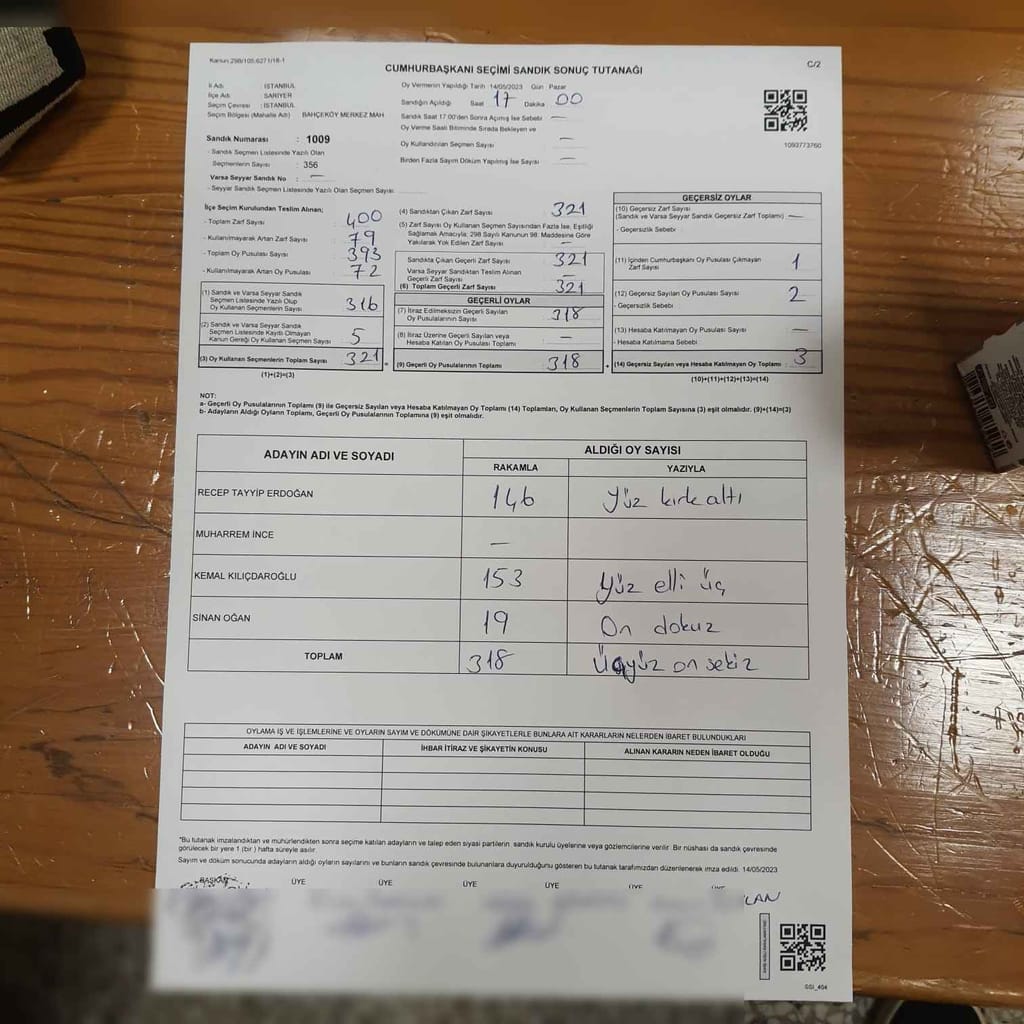 Kanun 298/105,6271/18-1
C/2
CUMHURBAŞKANI SEÇİMİ SANDIK SONUÇ TUTANAĞI
İl Adı : İSTANBUL
İlçe Adı : SARIYER
Seçim Çevresi : İSTANBUL
Seçim Bölgesi (Mahalle Adı) BAHÇEKÖY MERKEZ MAH
Sandık Numarası : 1009
- Sandık Seçmen Listesinde Yazılı Olan
Seçmenlerin Sayısı : 356
Varsa Seyyar Sandık No : —
- Seyyar Sandık Seçmen Listesinde Yazılı Olan Seçmen Sayısı
Oy Vermenin Yapıldığı Tarih 14/05/2023 Gün Pazar
Sandığın Açıldığı Saat 17 Dakika 00
Sandık Saat 17:00'den Sonra Açılmış İse Sebebi —
Oy Verme Saati Bitiminde Sırada Bekleyen ve
Oy Kullandırılan Seçmen Sayısı —
Birden Fazla Sayım Döküm Yapılmış İse Sayısı —
1093773760
İlçe Seçim Kurulundan Teslim Alınan;
- Toplam Zarf Sayısı 400
- Kullanılmayarak Artan Zarf Sayısı 79
- Toplam Oy Pusulası Sayısı 393
- Kullanılmayarak Artan Oy Pusulası 72
(1) Sandık ve Varsa Seyyar Sandık
Seçmen Listesinde Yazılı Olup
Oy Kullanan Seçmenlerin Sayısı 316
(2) Sandık ve Varsa Seyyar Sandık
Seçmen Listesinde Kayıtlı Olmayan
Kanun Gereği Oy Kullanan Seçmen Sayısı 5
(3) Oy Kullanan Seçmenlerin Toplam Sayısı 321
(1)+(2)=(3)
(4) Sandıktan Çıkan Zarf Sayısı 321
(5) Zarf Sayısı Oy Kullanan Seçmen Sayısından Fazla İse, Eşitliği
Sağlamak Amacıyla; 298 Sayılı Kanunun 98. Maddesine Göre
Yakılarak Yok Edilen Zarf Sayısı —
Sandıkta Çıkan Geçerli Zarf Sayısı 321
Varsa Seyyar Sandıktan Teslim Alınan
Geçerli Zarf Sayısı —
(6) Toplam Geçerli Zarf Sayısı 321
GEÇERLİ OYLAR
(7) İtiraz Edilmeksizin Geçerli Sayılan
Oy Pusulalarının Sayısı 318
(8) İtiraz Üzerine Geçerli Sayılan veya
Hesaba Katılan Oy Pusulası Toplamı —
= (9) Geçerli Oy Pusulalarının Toplamı 318
GEÇERSİZ OYLAR
(10) Geçersiz Zarf Sayısı
(Sandık ve Varsa Seyyar Sandık Geçersiz Zarf Toplamı) —
- Geçersizlik Sebebi
(11) İçinden Cumhurbaşkanı Oy Pusulası Çıkmayan
Zarf Sayısı 1
(12) Geçersiz Sayılan Oy Pusulası Sayısı 2
- Geçersizlik Sebebi
(13) Hesaba Katılmayan Oy Pusulası Sayısı —
- Hesaba Katılmama Sebebi
+ (14) Geçersiz Sayılan veya Hesaba Katılmayan Oy Toplamı 3
(10)+(11)+(12)+(13)=(14)
NOT:
a- Geçerli Oy Pusulalarının Toplamı (9) ile Geçersiz Sayılan veya Hesaba Katılmayan Oy Toplamı (14) Toplamları, Oy Kullanan Seçmenlerin Toplam Sayısına (3) eşit olmalıdır. (9)+(14)=(3)
b- Adayların Aldığı Oyların Toplamı, Geçerli Oy Pusulalarının Toplamına (9) eşit olmalıdır.
ADAYIN ADI VE SOYADI ALDIĞI OY SAYISI
RAKAMLA YAZIYLA
RECEP TAYYİP ERDOĞAN 146 Yüz kırk altı
MUHARREM İNCE —
KEMAL KILIÇDAROĞLU 153 Yüz elli üç
SİNAN OĞAN 19 On dokuz
TOPLAM 318 Üçyüz on sekiz
OYLAMA İŞ VE İŞLEMLERİNE VE OYLARIN SAYIM VE DÖKÜMÜNE DAİR ŞİKAYETLERLE BUNLARA AİT KARARLARIN NELERDEN İBARET BULUNDUKLARI
ADAYIN ADI VE SOYADI İHBAR İTİRAZ VE ŞİKAYETİN KONUSU ALINAN KARARIN NEDEN İBARET OLDUĞU
*Bu tutanak imzalandıktan ve mühürlendikten sonra seçime katılan adayların ve talep eden siyasi partilerin sandık kurulu üyelerine veya gözlemcilerine verilir. Bir nüshası da sandık çevresinde
görülecek bir yere 1 (bir) hafta süreyle asılır.
Sayım ve döküm sonucunda adayların aldığı oyların sayılarını ve bunların sandık çevresinde bulunanlara duyurulduğunu gösteren bu tutanak tarafımızdan düzenlenerek imza edildi. 14/05/2023
BAŞKAN ÜYE ÜYE ÜYE ÜYE ÜYE ÜYE
LAN
SSI_404